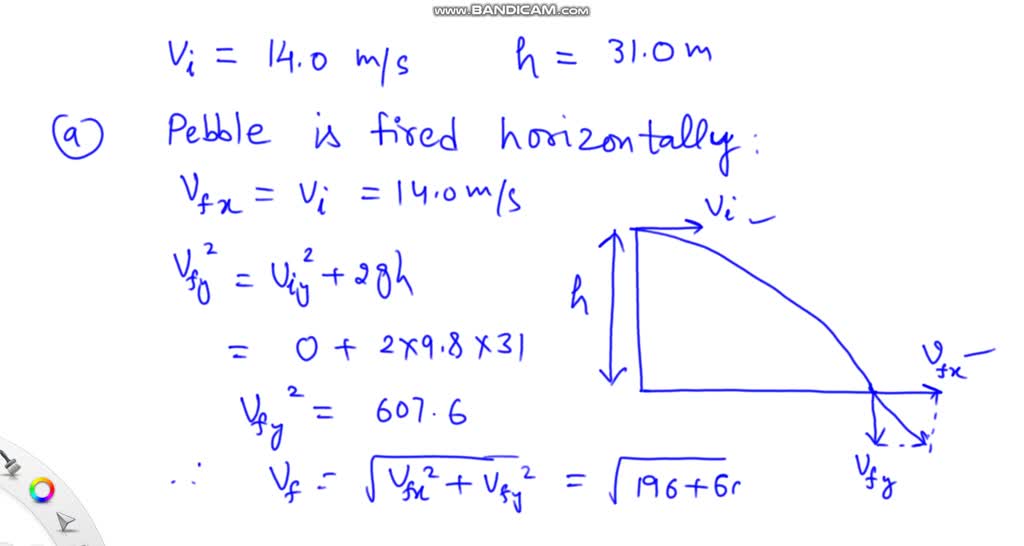 www.BANDICAM.com
Vi = 14.0 m/s h = 31.0 m
(a) Pebble is fired horizontally:
Vfx = Vi = 14.0 m/s
Vi
Vfy² = Viy² + 2gh
h
= 0 + 2×9.8×31
Vfx
Vfy² = 607.6
Vfy
∴ Vf = √Vfx² + Vfy² = √196+6